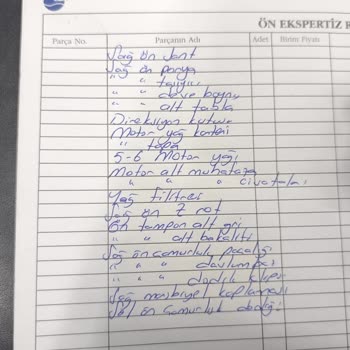 ÖN EKSPERTİZ R
Parça No. Parçanın Adı Adet Birim Fiyatı
Sağ ön Jant
Sağ ön porya
" " taşıyıcı
" " deve boynu
" " alt tabla
Direksiyon kutusu
Motor yağ karteri
" tapa
5-6 Motor yağı
Motor alt muhafaza
" " " civataları
Yağ filitresi
Sağ ön Z rot
Ön tampon alt
" " alt bakaliti
Sağ ön çamurluk
" " " davlumbaz
" " " klipsi
Sağ marşbiyel kaplaması
ön çamurluk